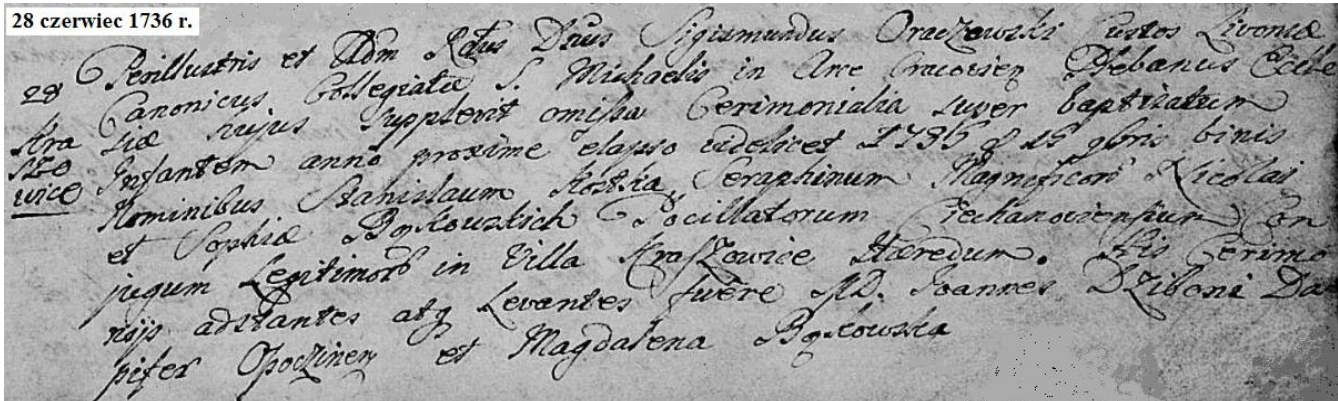 28 czerwiec 1736 r.
28 Perillustris et Adm Rdus Dnus Sigismundus Oraczowski Custos Livoniæ
Canonicus Collegiatæ S. Michaelis in Arce Cracovien Plebanus Eccle
Kra siæ hujus supplevit omissa Cerimonialia super baptizatum
szo Infantem anno proxime elapso videlicet 1735 15 9bris binis
wice Nominibus Stanislaum Kostka, Seraphinum Magnificors Nicolai
et Sophiæ Bąkowskich Pocillatorum Ciechanoviensium Con
jugum Legitimors in Villa Kraszowice Hæredum. His Cerimo
nijs adstantes atq Levantes fuêre MD. Joannes Dziboni Da
pifer Opoczinen et Magdalena Bąkowska